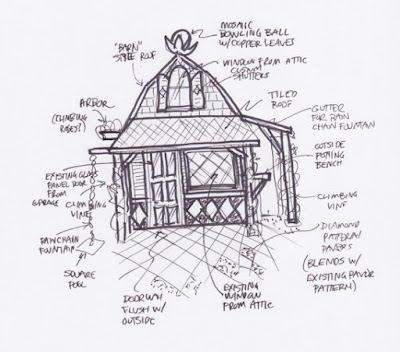 MOSAIC
BOWLING BALL
W/COPPER LEAVES
"BARN"
STYLE ROOF
WINDOW FROM ATTIC
CUSTOM
SHUTTERS
TILED
ROOF
ARBOR
(CLIMBING
ROSES?)
GUTTER
FOR RAIN
CHAIN FOUNTAIN
OUTSIDE
POTTING
BENCH
EXISTING GLASS
PANEL DOOR
FROM
GARAGE
CLIMBING
VINE
CLIMBING
VINE
RAINCHAIN
FOUNTAIN
SQUARE
POOL
DIAMOND
PATTERN
PAVERS
(BLENDS W/
EXISTING PAVOR
PATTERN)
DOORWAY
FLUSH W/
OUTSIDE
EXISTING
WINDOW
FROM ATTIC